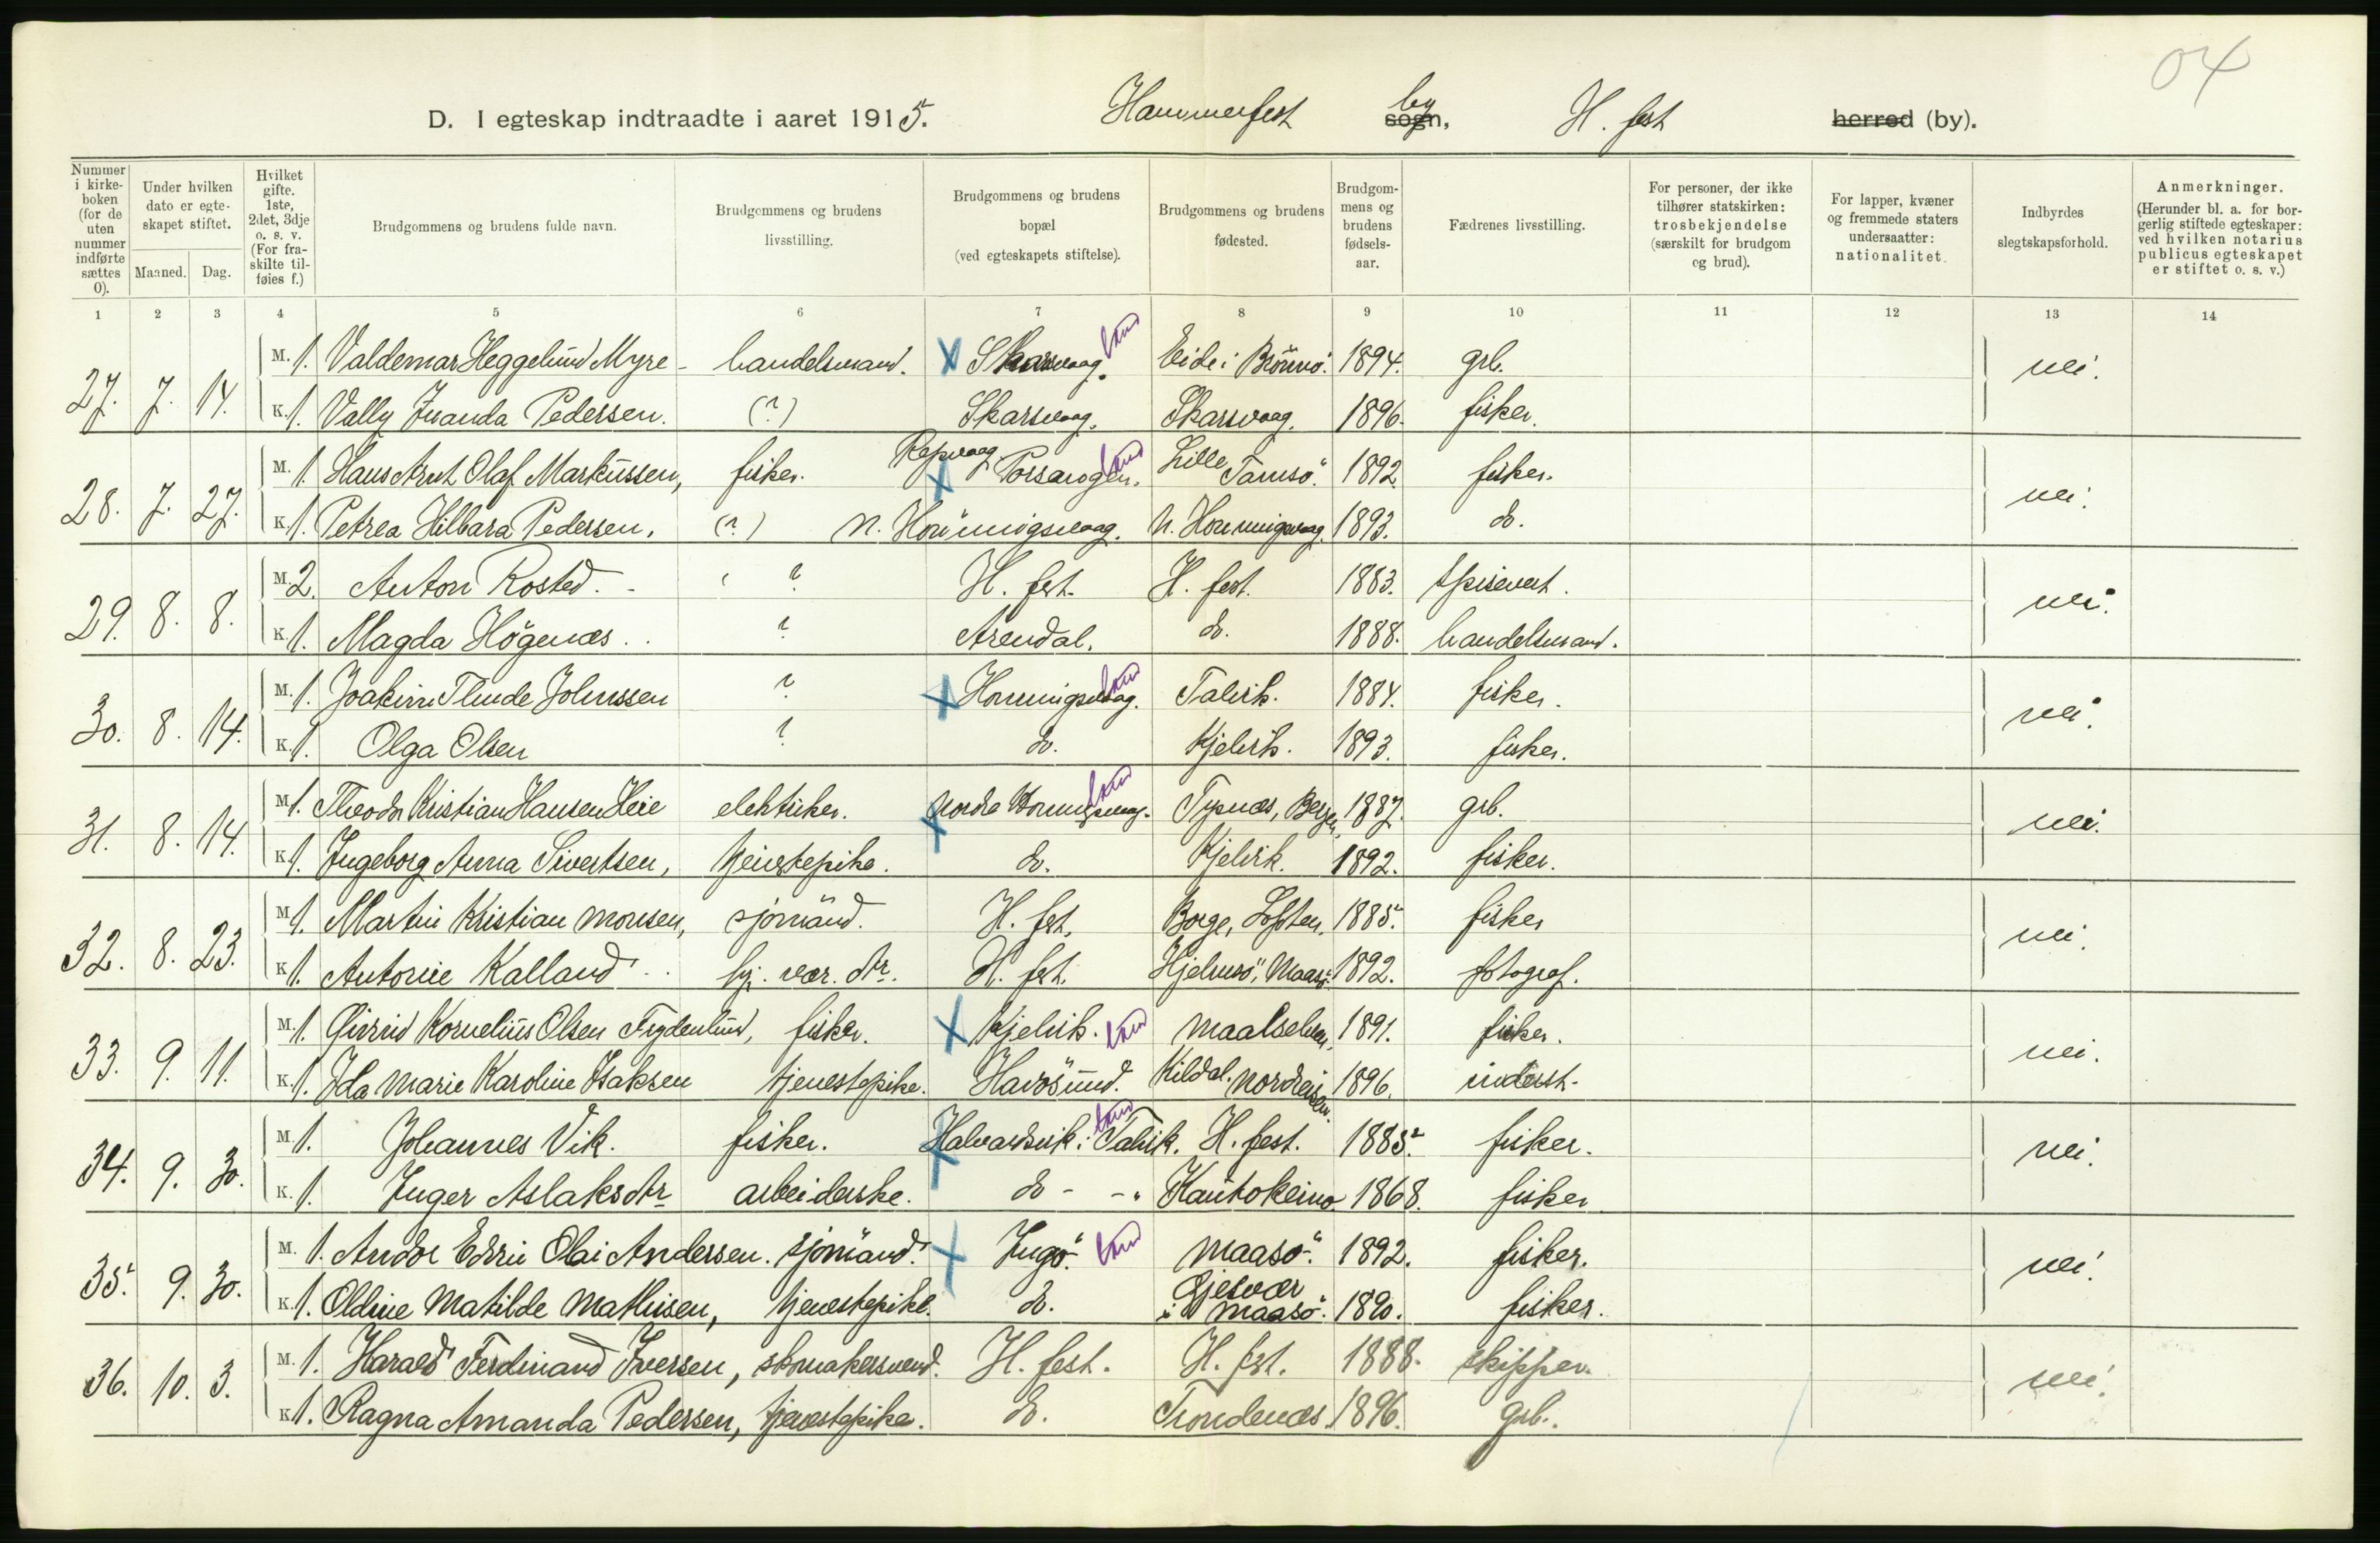 04
D. I egteskap indtraadte i aaret 1915. Hammerfest sogn, by H. fest herred (by).
Nummer i kirkeboken (for de uten nummer indførte sættes 0). Under hvilken dato er egteskapet stiftet. Maaned. Dag. Hvilket gifte. 1ste, 2det, 3dje o. s. v. (For fraskilte tilføies f.) Brudgommens og brudens fulde navn. Brudgommens og brudens livsstilling. Brudgommens og brudens bopæl (ved egteskapets stiftelse). Brudgommens og brudens fødested. Brudgommens og brudens fødselsaar. Fædrenes livsstilling. For personer, der ikke tilhører statskirken: trosbekjendelse (særskilt for brudgom og brud). For lapper, kvæner og fremmede staters undersaatter: nationalitet. Indbyrdes slegtskapsforhold. Anmerkninger. (Herunder bl. a. for borgerlig stiftede egteskaper: ved hvilken notarius publicus egteskapet er stiftet o. s. v.)
1 2 3 4 5 6 7 8 9 10 11 12 13 14
27. 7. 14. M. 1. Valdemar Heggelund Myre - handelsmand. X Skarsvaag. land Eide i Brönnö. 1894. grb. nei.
K. 1. Vally Juanda Pedersen. (?) Skarsvaag. Skarsvaag. 1896. fisker.
28. 7. 27. M. 1. Hans Arnt Olaf Markussen, fisker. Repvaag X Porsangen. land Lille Tamsö. 1892. fisker. nei.
K. 1. Petrea Hilbara Pedersen. (?) N. Honningsvaag. N. Honningsvaag. 1893. do.
29. 8. 8. M. 2. Anton Rosted. ? H. fest. H. fest. 1883. spisevert. nei.
K. 1. Magda Högenæs. ? Arendal. do. 1888. handelsmand.
30. 8. 14. M. 1. Joakim Johnssen ? X Honningsvaag. land Talvik. 1884. fisker. nei.
K. 1. Olga Olsen ? do. Kjelvik. 1893. fisker.
31. 8. 14. M. 1. Theodor Kristian Hansen Heie elektriker. X Nordre Honningsvaag. land Tysnæs, Bergen, 1887. grb. nei.
K. 1. Ingeborg Anna Sivertsen, tjenestepike. do. Kjelvik. 1892. fisker.
32. 8. 23. M. 1. Martin Kristian Monsen, sjömand. H. fest. Borge, Lofoten. 1885. fisker nei.
K. 1. Antonie Kalland hj. vær. dtr. H. fest. Hjelmsö, Maasö. 1892. fotograf.
33. 9. 11. M. 1. Kornelius Olsen Frydenlund, fisker. X Kjelvik. land Maalselven, 1891. fisker. nei.
K. 1. Ida Marie Karoline Isaksen tjenestepike. Havösund. Kildal. Nordreisen. 1896. inderst.
34. 9. 30. M. 1. Johannes Vik. fisker. X Halvardsvik i Talvik. land H. fest. 1885. fisker. nei.
K. 1. Inger Aslaksdtr arbeiderske. do - -" Kautokeino 1868. fisker
35. 9. 30. M. 1. Andor Edvin Olai Andersen. sjömand. X Ingö. land Maasö. 1892. fisker. nei.
K. 1. Oldine Matilde Mathisen, tjenestepike. do. Gjesvær i Maasö. 1890. fisker.
36. 10. 3. M. 1. Harald Ferdinand Iversen, skomakersvend. H. fest. H. fest. 1888. skipper. nei.
K. 1. Ragna Amanda Pedersen, tjenestepike. do. Trondenæs. 1896. grb.